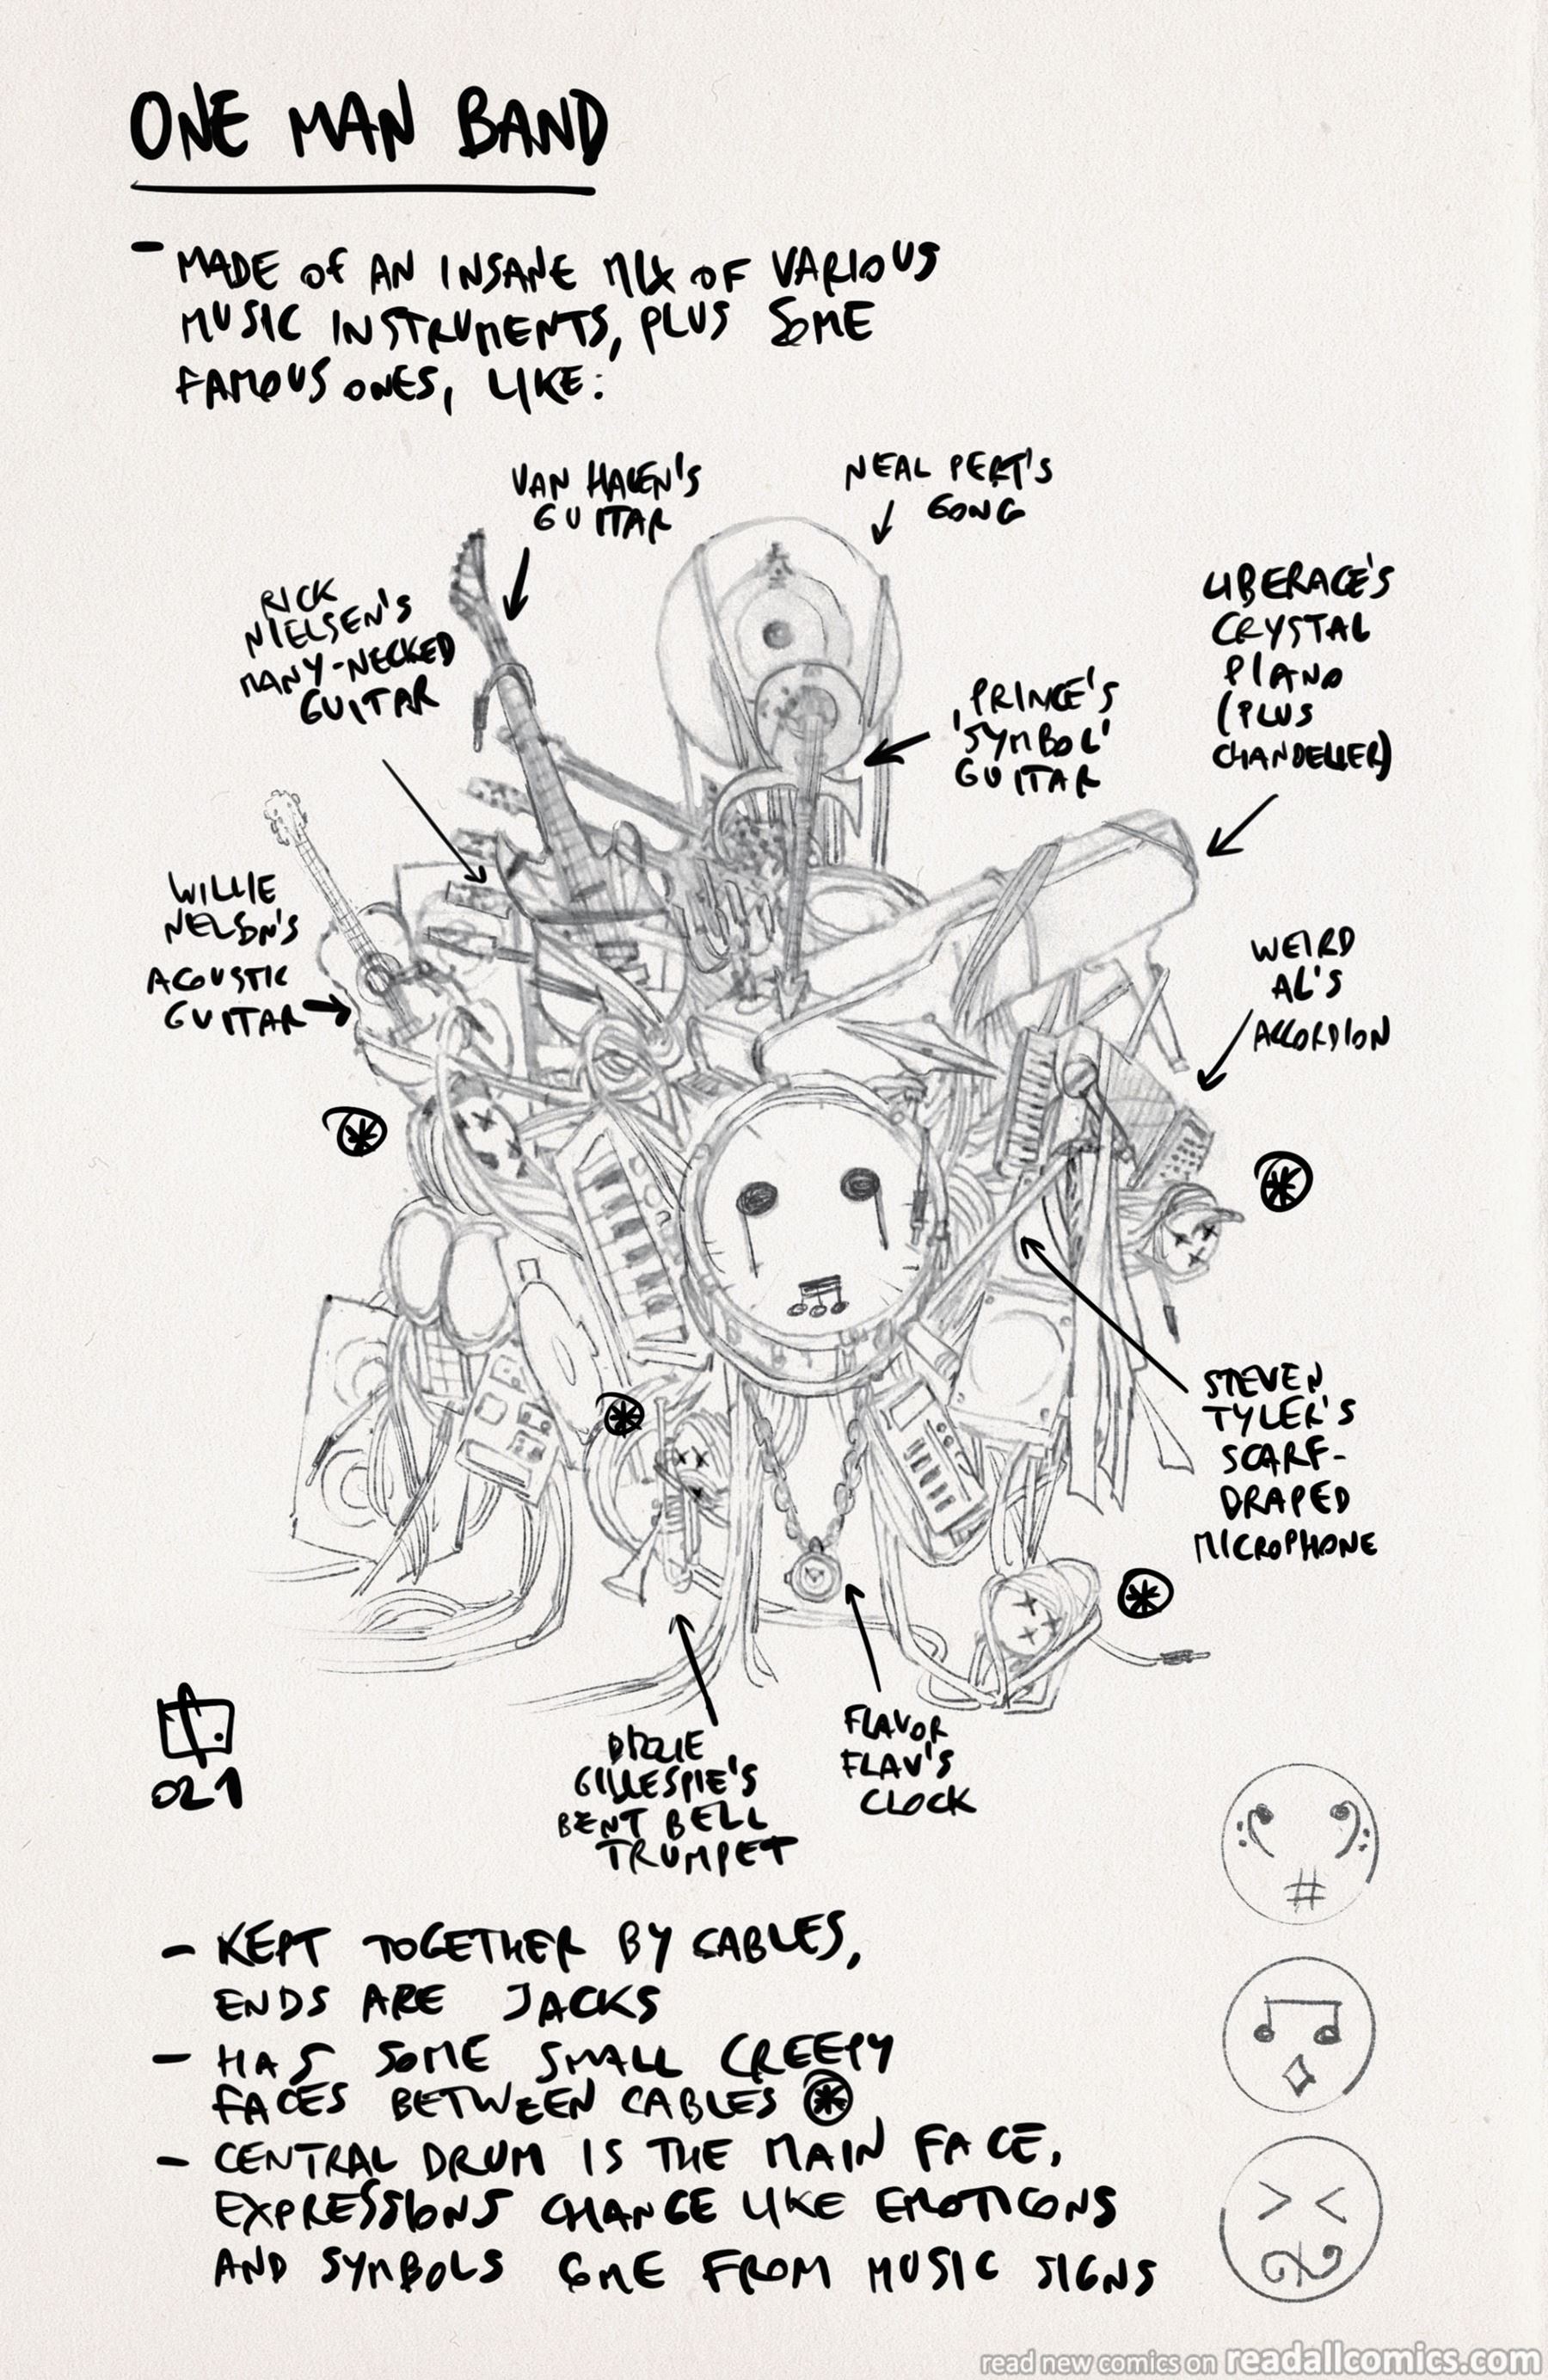 ONE MAN BAND
- MADE OF AN INSANE MIX OF VARIOUS
MUSIC INSTRUMENTS, PLUS SOME
FAMOUS ONES, LIKE:
VAN HALEN'S
GUITAR
NEAL PERT'S
GONG
RICK
NIELSEN'S
MANY-NECKED
GUITAR
LIBERACE'S
CRYSTAL
PIANO
(PLUS
CHANDELIER)
PRINCE'S
'SYMBOL'
GUITAR
WILLIE
NELSON'S
ACOUSTIC
GUITAR
WEIRD
AL'S
ACCORDION
STEVEN
TYLER'S
SCARF-
DRAPED
MICROPHONE
021
DIZZIE
GILLESPIE'S
BENT BELL
TRUMPET
FLAVOR
FLAV'S
CLOCK
- KEPT TOGETHER BY CABLES,
ENDS ARE JACKS
- HAS SOME SMALL CREEPY
FACES BETWEEN CABLES
- CENTRAL DRUM IS THE MAIN FACE,
EXPRESSIONS CHANGE LIKE EMOTICONS
AND SYMBOLS COME FROM MUSIC SIGNS
read new comics on readallcomics.com